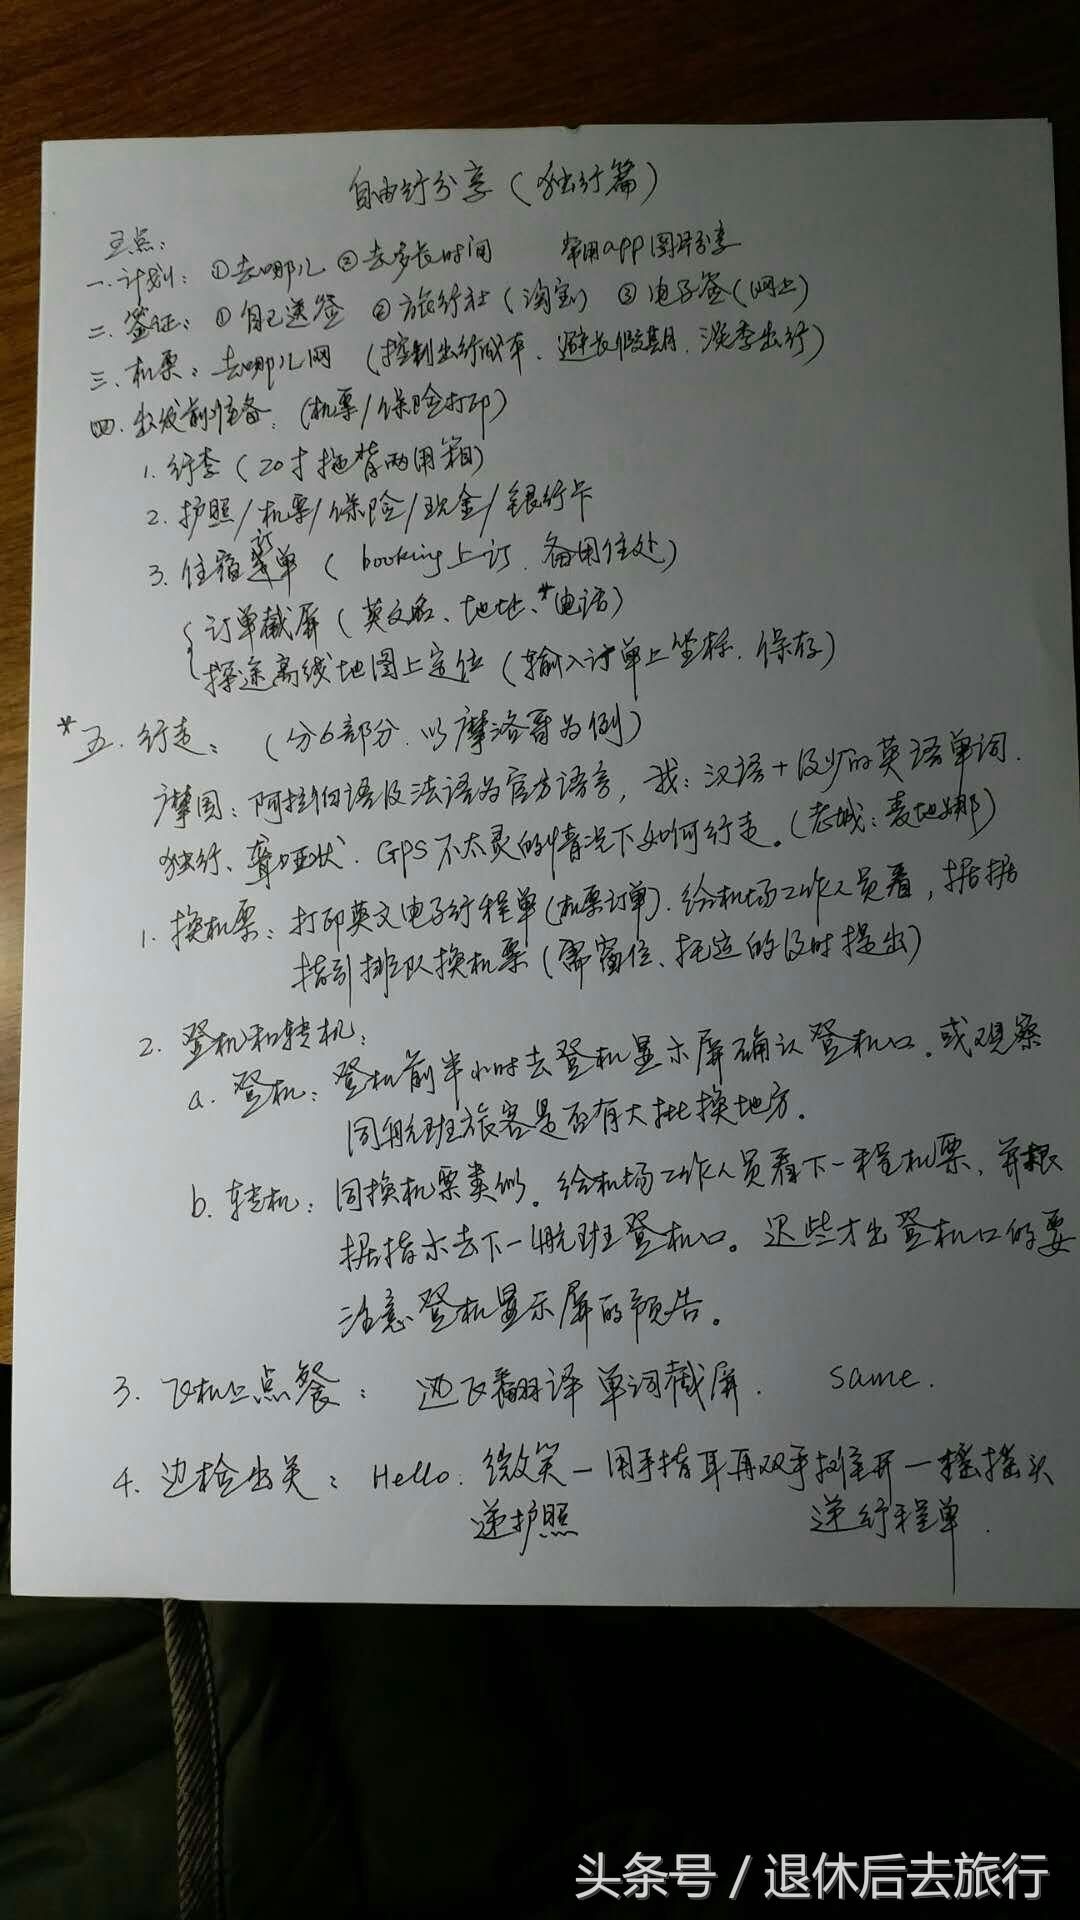 自由行分享（独行篇）
五点：
一.计划：①去哪儿 ②去多长时间 常用app图片分享
二.签证：①自己送签 ②旅行社（淘宝） ③电子签（网上）
三.机票：去哪儿网（控制出行成本、避长假期、淡季出行）
四.出发前准备：（机票/保险打印）
1.行李（20寸拖背两用箱）
2.护照/机票/保险/现金/银行卡
3.住宿订单（booking上订、备用住处）
订单截屏（英文名、地址、*电话）
探途离线地图上定位（输入订单上坐标、保存）
*五.行走：（分6部分.以摩洛哥为例）
摩国：阿拉伯语及法语为官方语言，我：汉语+极少的英语单词.
独行、聋哑状.GPS不太灵的情况下如何行走。（老城：麦地娜）
1.换机票：打印英文电子行程单（机票订单）.给机场工作人员看，根据
指引排队换机票（需窗位、托运的及时提出）
2.登机和转机：
a.登机：登机前半小时去登机显示屏确认登机口。或观察
同航班旅客是否有大批换地方。
b.转机：同换机票类似。给机场工作人员看下一程机票，并根
据指示去下一航班登机口。迟些才出登机口的要
注意登机显示屏的预告。
3.飞机上点餐：边飞翻译单词截屏. same.
4.边检出关：Hello.微笑—用手指耳再双手摊开—摇摇头
递护照 递行程单.
头条号 / 退休后去旅行